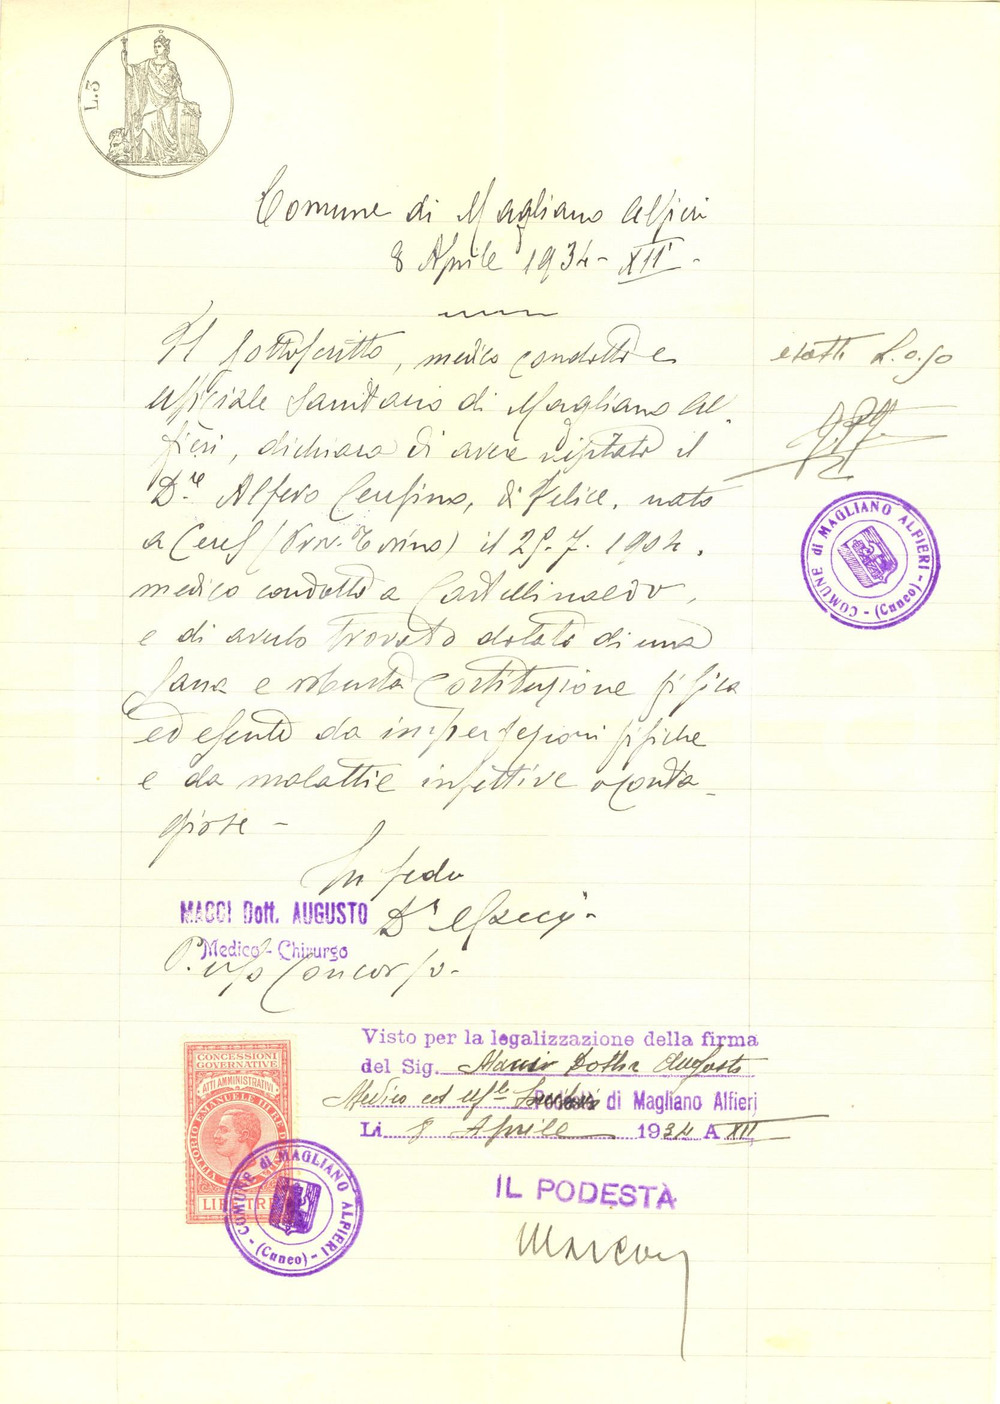 L.3
Comune di Magliano Alfieri
8 Aprile 1934 - XII -
Il sottoscritto, medico condotto e
ufficiale sanitario di Magliano Al-
fieri, dichiara di aver visitato il
D.re Alfero Cerefino, di Felice, nato
a Ceres (Prov. Torino) il 25.7.1904,
medico condotto a Castellinaldo,
e di averlo trovato dotato di una
sana e robusta costituzione fisica
ed esente da imperfezioni fisiche
e da malattie infettive o conta-
giose -
esatte L. 0.50
COMUNE di MAGLIANO ALFIERI - (Cuneo) -
In fede
MACCI Dott. AUGUSTO
Dr Macci -
Medico - Chirurgo
P. uso Concorso -
Visto per la legalizzazione della firma
del Sig. Macci Dottor Augusto
Medico ed Uff.le Sanitario di Magliano Alfieri
Li 8 Aprile 1934 A XII
CONCESSIONI
GOVERNATIVE
ATTI AMMINISTRATIVI
VITTORIO EMANUELE III RE
LIRE TRE
COMUNE di MAGLIANO ALFIERI - (Cuneo) -
IL PODESTÀ